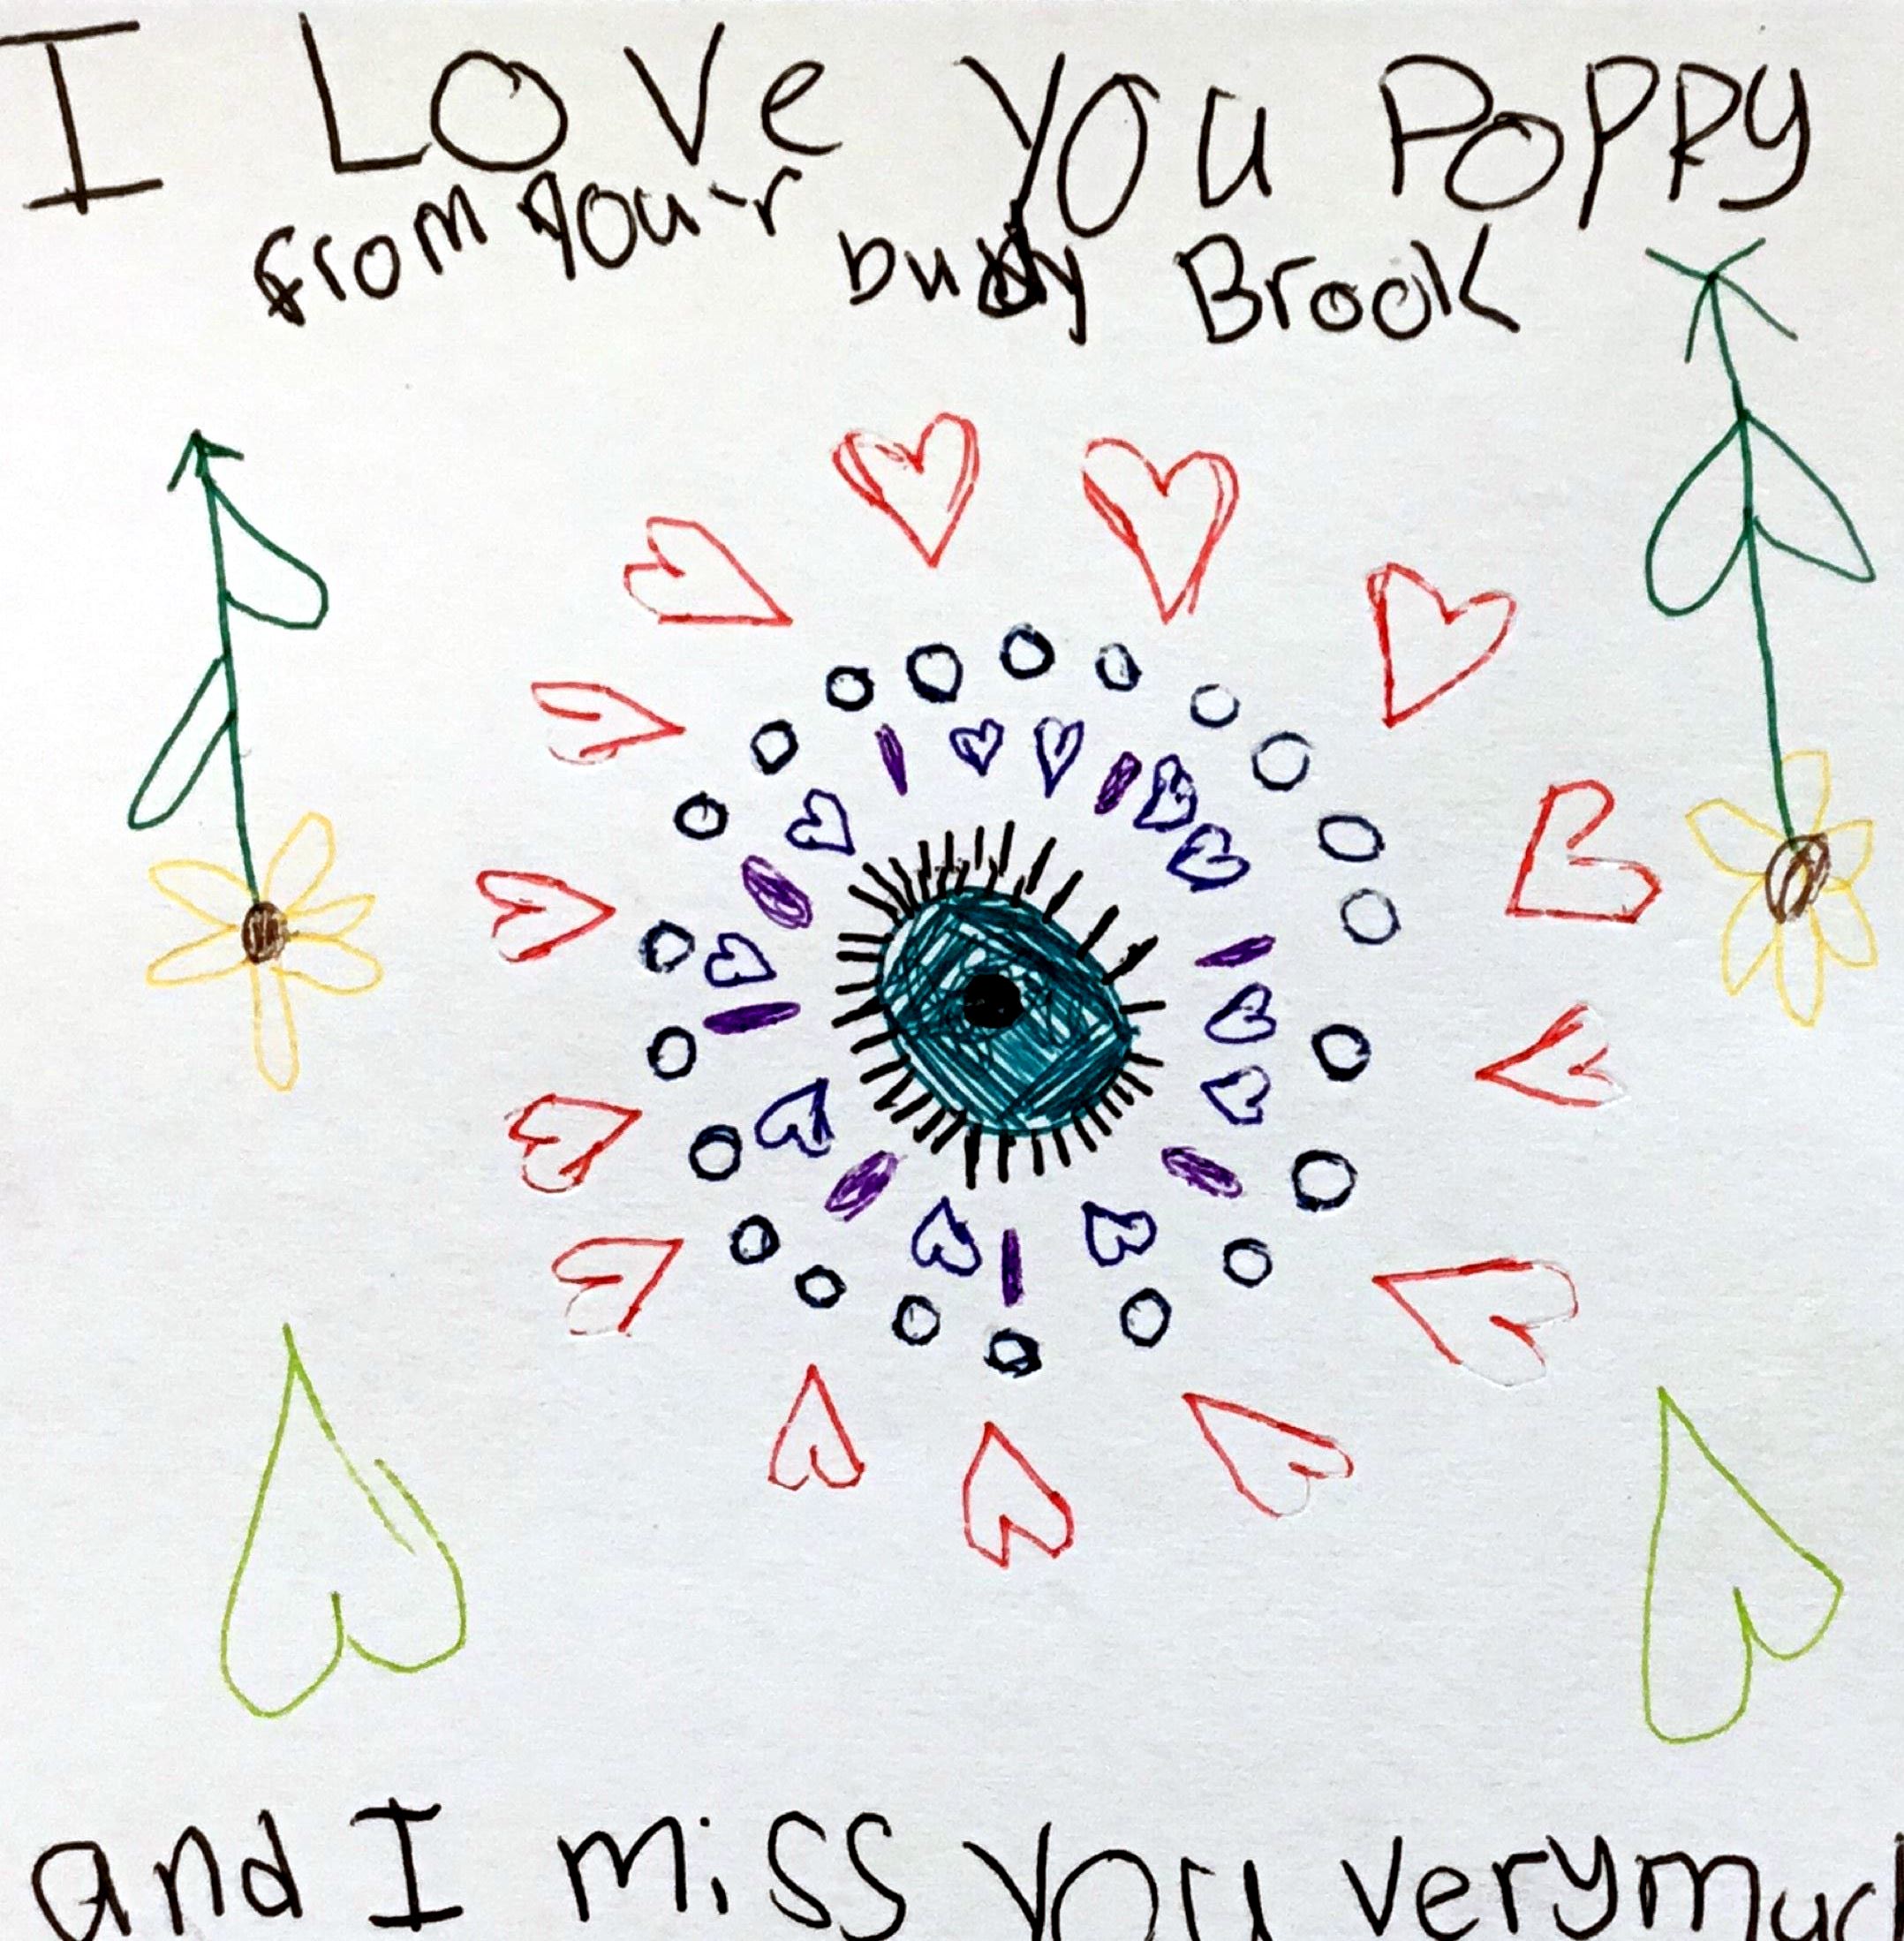 I LOVe YOu POPPy
from you-r buddy Brook
and I miss You very much